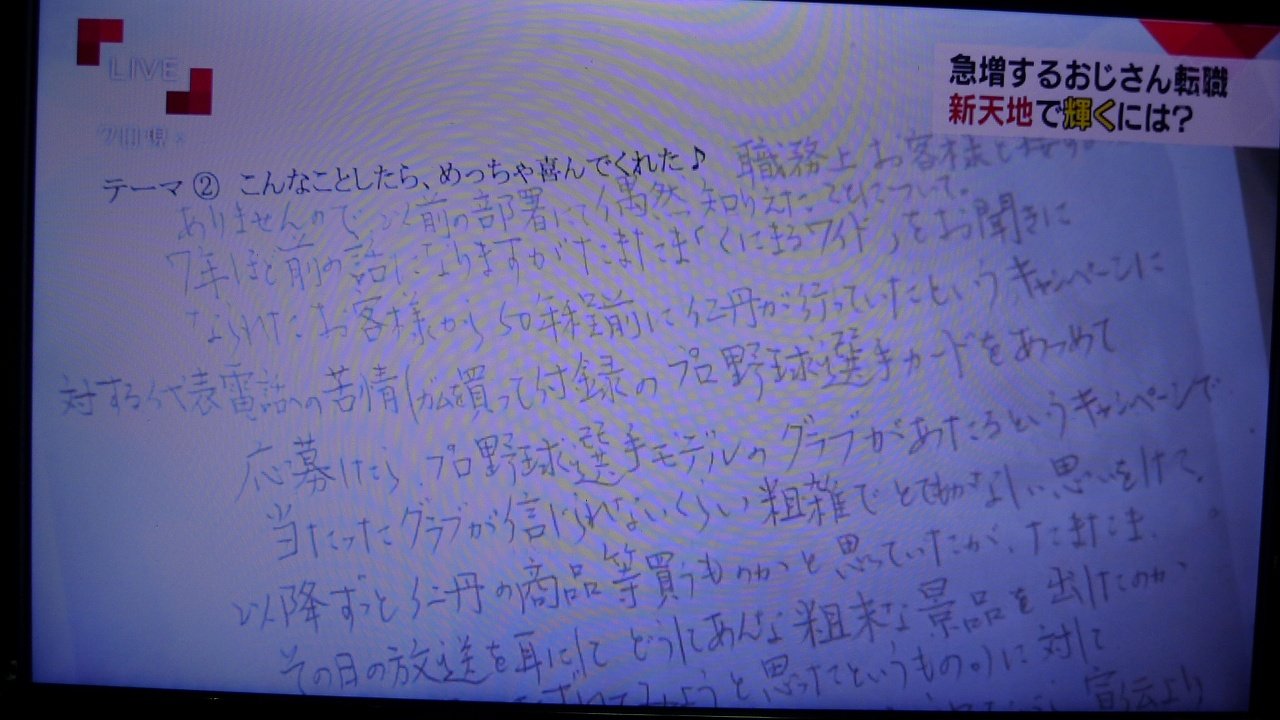 LIVE
急増するおじさん転職
新天地で輝くには?
テーマ ② こんなことしたら、めっちゃ喜んでくれた♪
職務上お客様と接する
ありませんので、前の部署にて偶然知りえたことについて。
7年ほど前の話になりますがたまたま「くにまるワイド」をお聞きに
なられたお客様から50年程前に仁丹が行っていたというキャンペーンに
対する代表電話への苦情(ガムを買って付録のプロ野球選手カードをあつめて
応募したら、プロ野球選手モデルのグラブがあたるというキャンペーンで
当たったグラブが信じられないくらい粗雑でとてもかなしい思いをして、
以降ずっと仁丹の商品等買うものかと思っていたが、たまたま、
その日の放送を耳にしてどうしてあんな粗末な景品を出したのか
みようと思ったというもの。)に対して
宣伝より